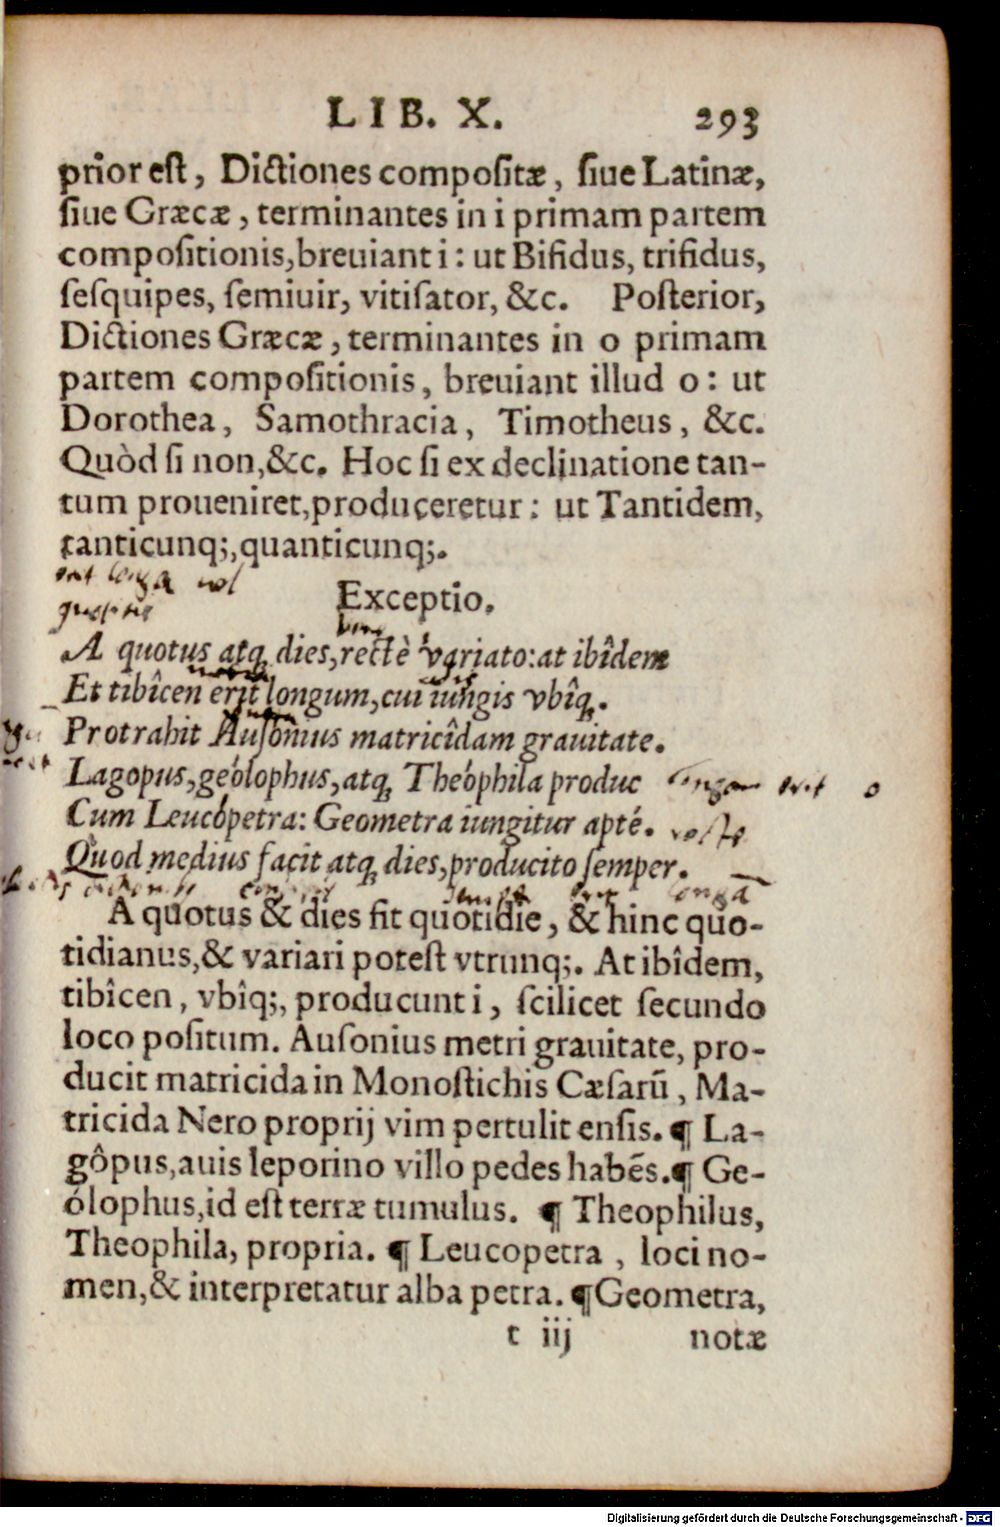 LIB. X. 293
prior est, Dictiones compositæ, siue Latinæ,
siue Græcæ, terminantes in i primam partem
compositionis, breuiant i: ut Bifidus, trifidus,
sesquipes, semiuir, vitisator, &c. Posterior,
Dictiones Græcæ, terminantes in o primam
partem compositionis, breuiant illud o: ut
Dorothea, Samothracia, Timotheus, &c.
Quòd si non, &c. Hoc si ex declinatione tan-
tum proueniret, produceretur: ut Tantidem,
tanticunq;, quanticunq;.
erit longa vel
Exceptio.
A quotus atq; dies, rectè variato: at ibîdem
Et tibîcen erit longum, cui iungis vbîq;.
Protrahit Ausonius matricîdam grauitate.
Lagopus, geólophus, atq; Theóphila produc longam erit o
Cum Leucópetra: Geometra iungitur apté.
Quod medius facit atq; dies, producito semper.
A quotus & dies fit quotidie, & hinc quo-
tidianus, & variari potest vtrunq;. At ibîdem,
tibîcen, vbîq;, producunt i, scilicet secundo
loco positum. Ausonius metri grauitate, pro-
ducit matricida in Monostichis Cæsarū, Ma-
tricida Nero proprij vim pertulit ensis. ¶ La-
gôpus, auis leporino villo pedes habēs. ¶ Ge-
ólophus, id est terræ tumulus. ¶ Theophilus,
Theophila, propria. ¶ Leucopetra, loci no-
men, & interpretatur alba petra. ¶ Geometra,
t iij notæ
Digitalisierung gefördert durch die Deutsche Forschungsgemeinschaft - DFG